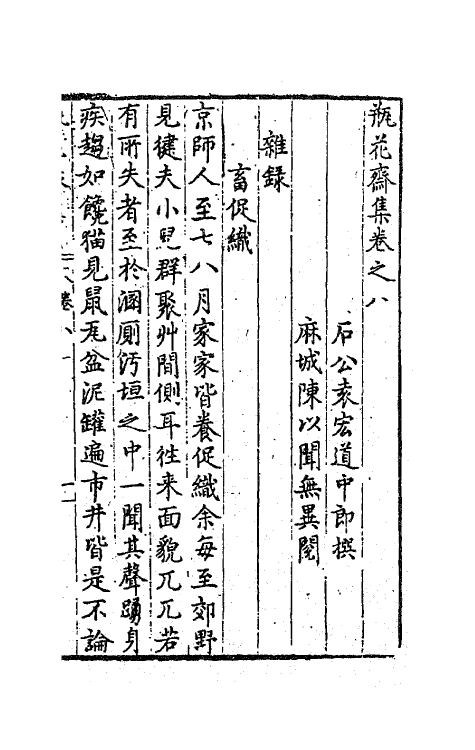 瓶花齋集卷之八
石公袁宏道中郎撰
麻城陳以聞無異閱
雜録
畜促織
京師人至七八月家家皆養促織余每至郊野
見健夫小兒群聚艸間側耳徃来面貌兀兀若
有所失者至於溷厠汚垣之中一聞其聲踴身
疾趨如饞猫見鼠瓦盆泥罐遍市井皆是不論